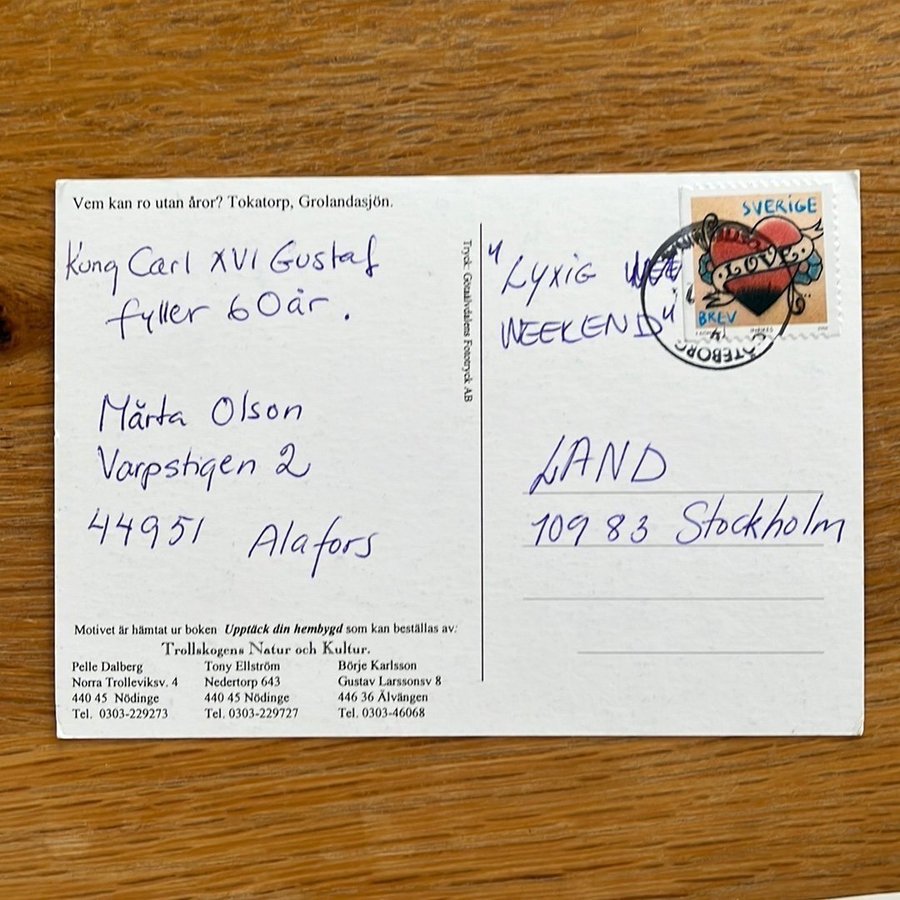 Vem kan ro utan åror? Tokatorp, Grolandasjön.
Kung Carl XVI Gustaf
fyller 60 år.
Märta Olson
Varpstigen 2
44951 Alafors
Motivet är hämtat ur boken Upptäck din hembygd som kan beställas av:
Trollskogens Natur och Kultur.
Pelle Dalberg
Norra Trolleviksv. 4
440 45 Nödinge
Tel. 0303-229273
Tony Ellström
Nedertorp 643
440 45 Nödinge
Tel. 0303-229727
Börje Karlsson
Gustav Larssonsv 8
446 36 Älvängen
Tel. 0303-46068
Tryck: Götaälvdalens Fototryck AB
"LYXIG WEE
WEEKEND"
SVERIGE
LOVE
BREV
GÖTEBORG
LAND
109 83 Stockholm